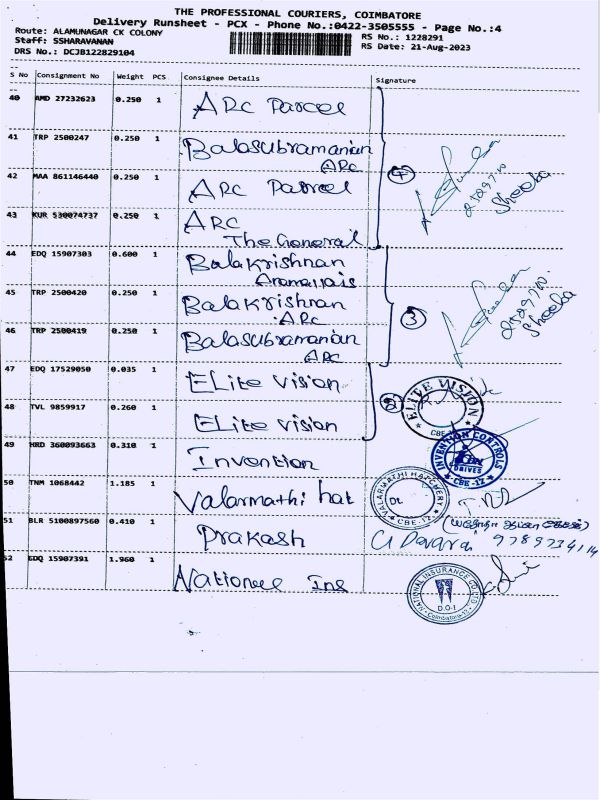 THE PROFESSIONAL COURIERS, COIMBATORE
Delivery Runsheet - PCX - Phone No.:0422-3505555 - Page No.:4
Route: ALAMUNAGAR CK COLONY
RS No.: 1228291
Staff: SSHARAVANAN
RS Date: 21-Aug-2023
DRS No.: DCJB122829104
S No Consignment No Weight PCS Consignee Details Signature
40 AMD 27232623 0.250 1 ARC Parcel
41 TRP 2500247 0.250 1 Balasubramanian
ARC
42 MAA 861146440 0.250 1 ARC Parcel
4
Sheeba
43 KUR 530074737 0.250 1 ARC
The General
44 EDQ 15907303 0.600 1 Balakrishnan
45 TRP 2500420 0.250 1 Balakrishnan
ARC
3
Sheeba
46 TRP 2500419 0.250 1 Balasubramanian
ARC
47 EDQ 17529050 0.035 1 Elite vision
2
ELITE VISION
CBE-12
48 TVL 9859917 0.260 1 Elite vision
49 HRD 360093663 0.310 1 Invention
INVENTION CONTROLS
DRIVES
CBE-12
50 TNM 1068442 1.185 1 Valarmathi hat
VALARMATHI HATCHERY
CBE-12
51 BLR 5100897560 0.410 1 Prakash
9789734114
52 EDQ 15907391 1.960 1 Ins
NATIONAL INSURANCE CO LTD
D.O-I
Coimbatore-12